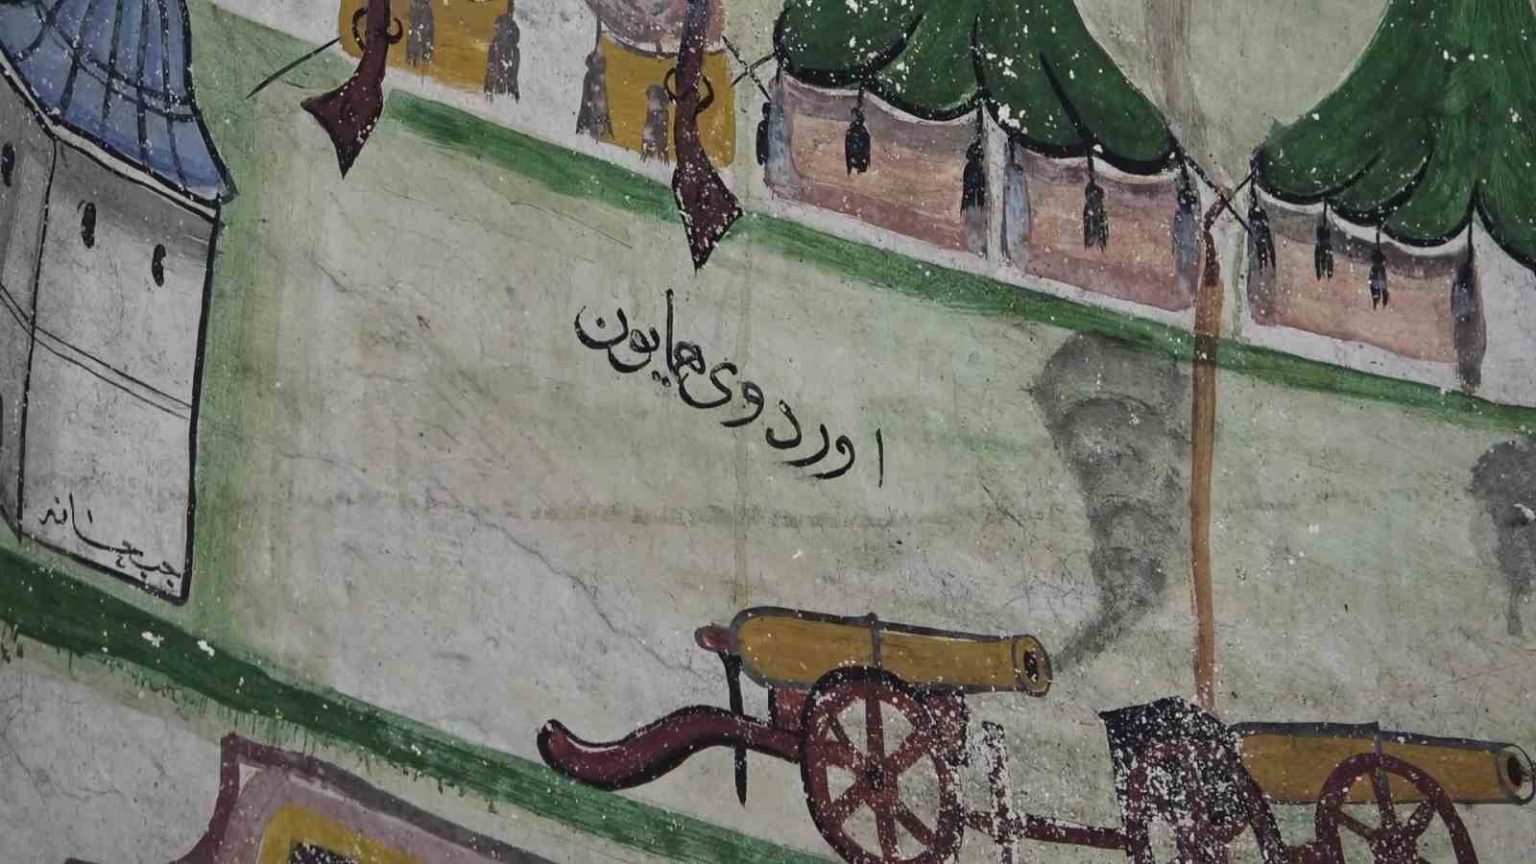 اوردوی همایون
جبه‌خانه